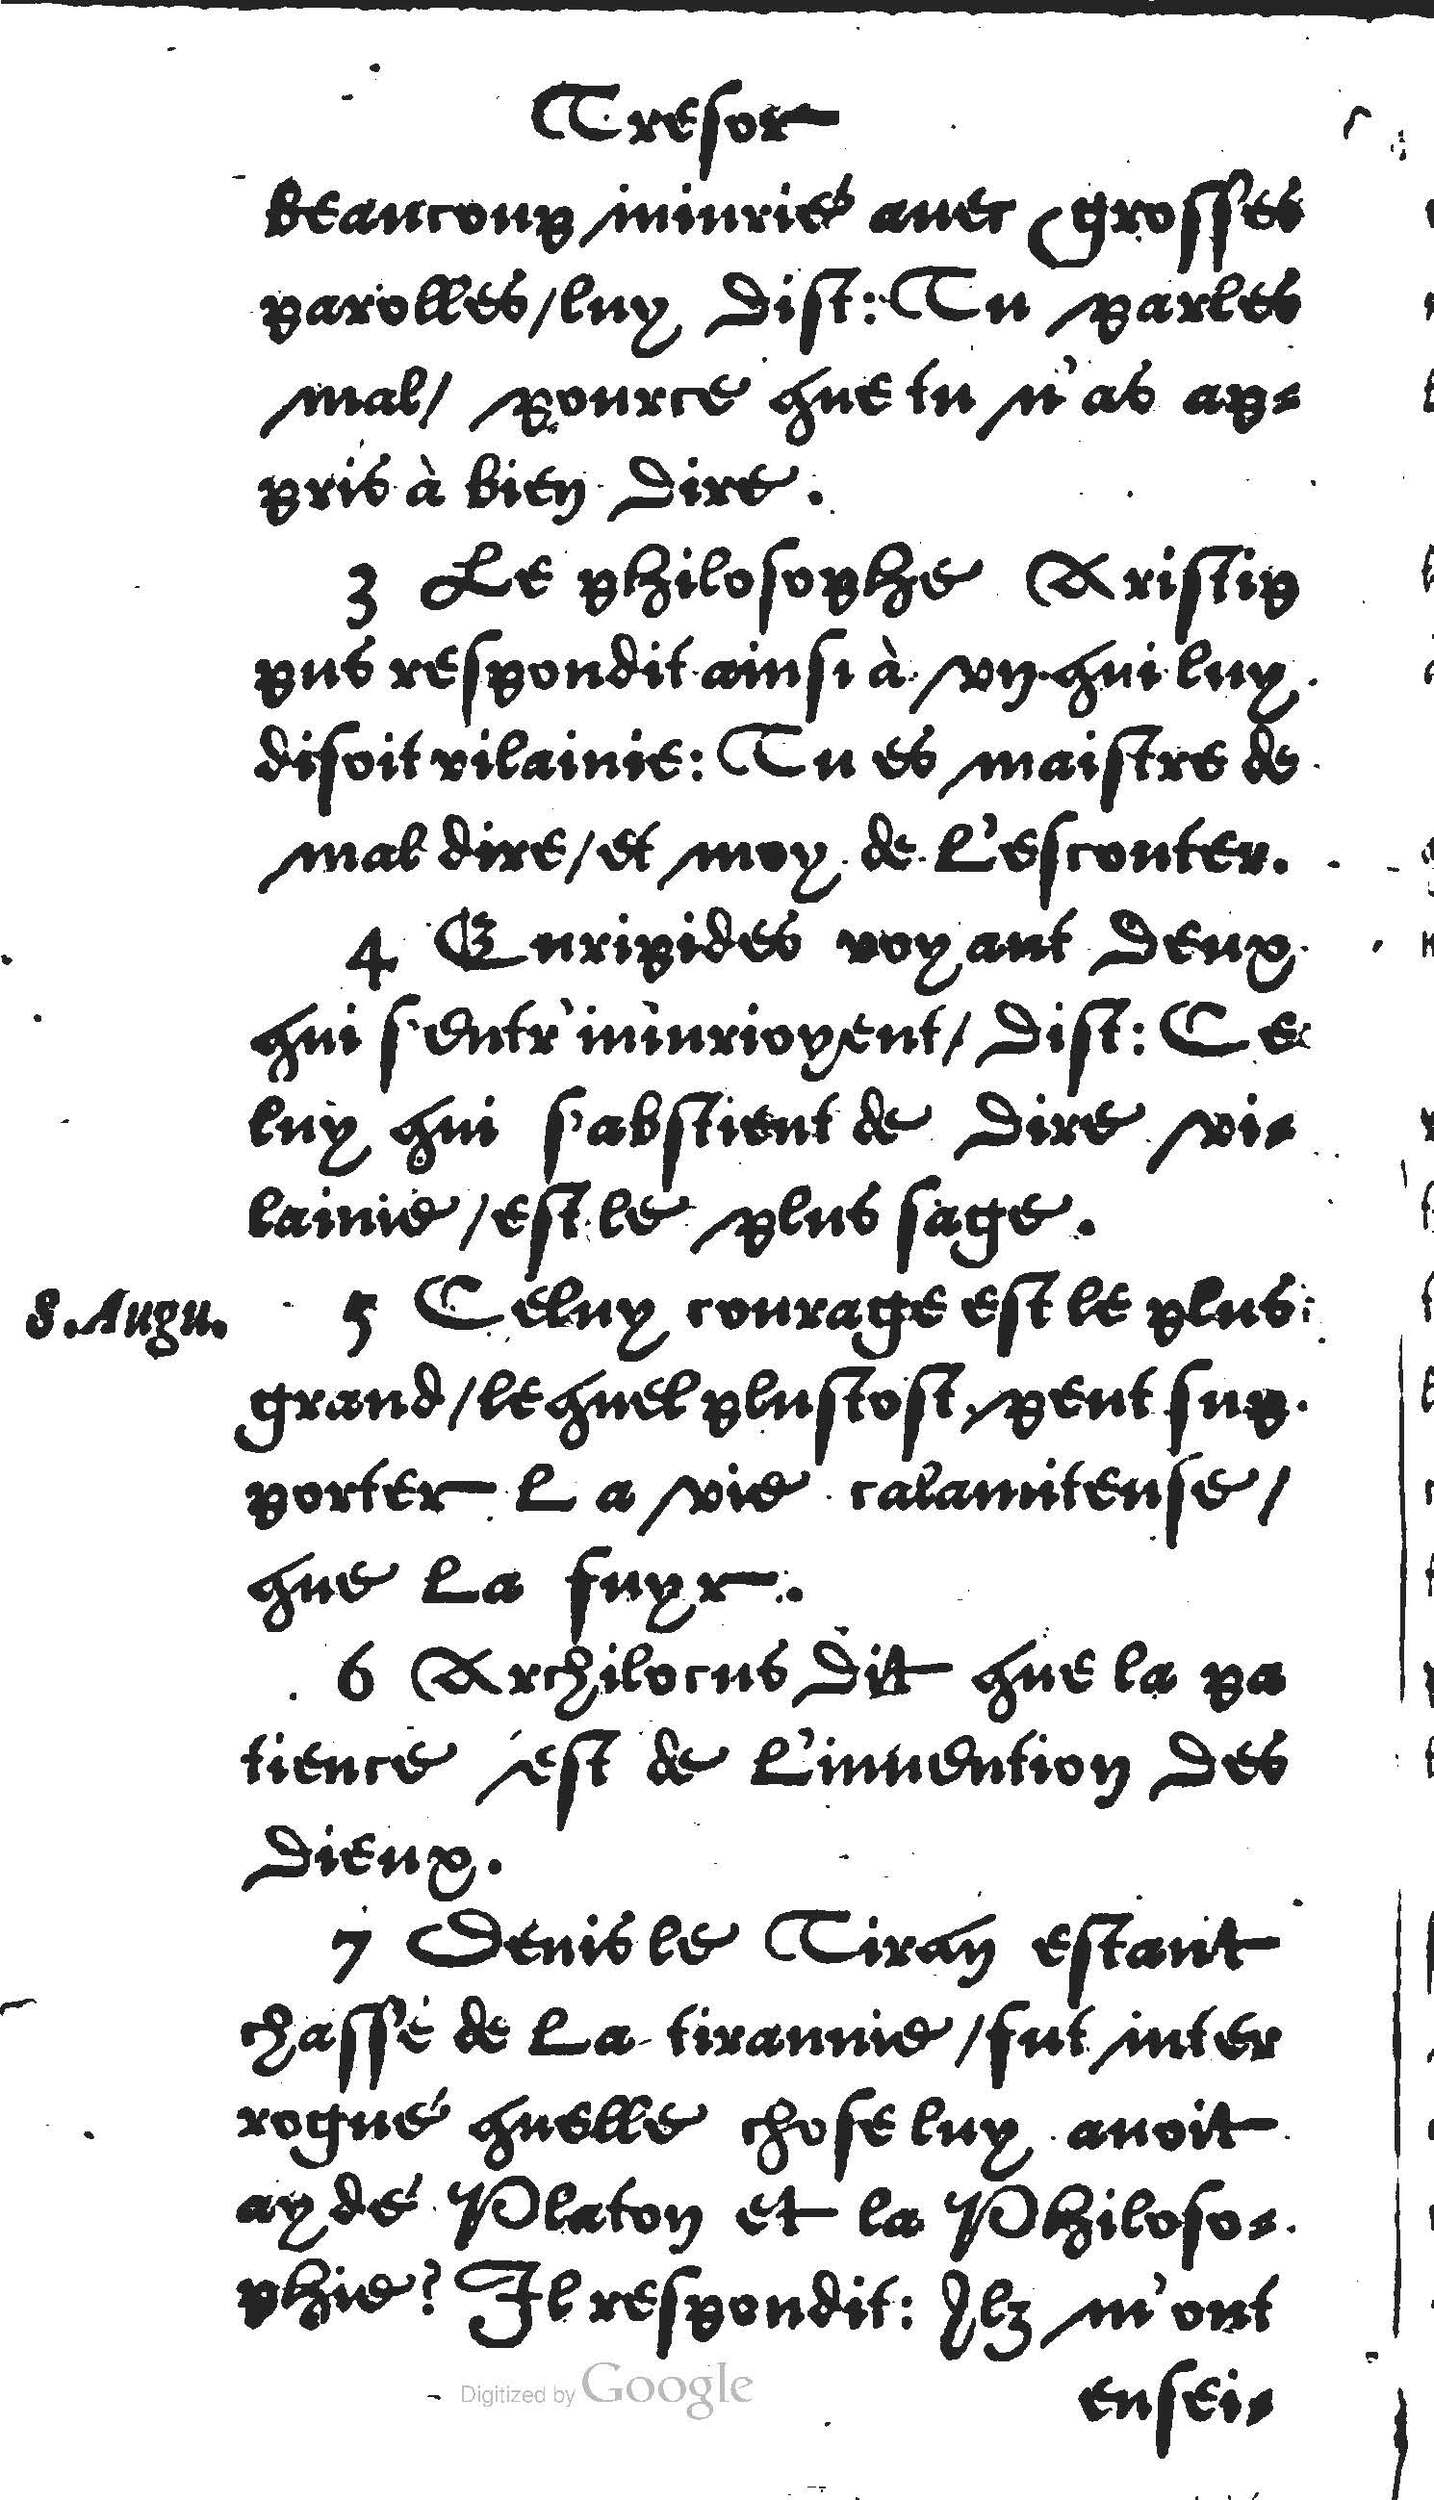 Tresor
beaucoup iniurié auec grosses
parolles/luy dist: Tu parles
mal/ pource que tu n'as ap-
pris à bien dire.
3 Le philosophe Aristip
pus respondit ainsi à vn qui luy
disoit vilainie: Tu es maistre de
mal dire/et moy de l'escouter.
4 Euripides voyant deux
qui s'entr'iniurioyent/ dist: Ce
luy qui s'abstient de dire vi-
lainie/est le plus sage.
S. Augu. 5 Celuy courage est le plus
grand/lequel plustost peut sup
porter la vie calamiteuse/
que la fuyr.
6 Archilocus dit que la pa
tience est de l'inuention des
dieux.
7 Denis le Tiran estant
chassé de la tirannie/fut inter
rogué quelle chose luy auoit
aydé Platon et la Philoso-
phie? Il respondit: Ilz m'ont
ensei-
Digitized by Google